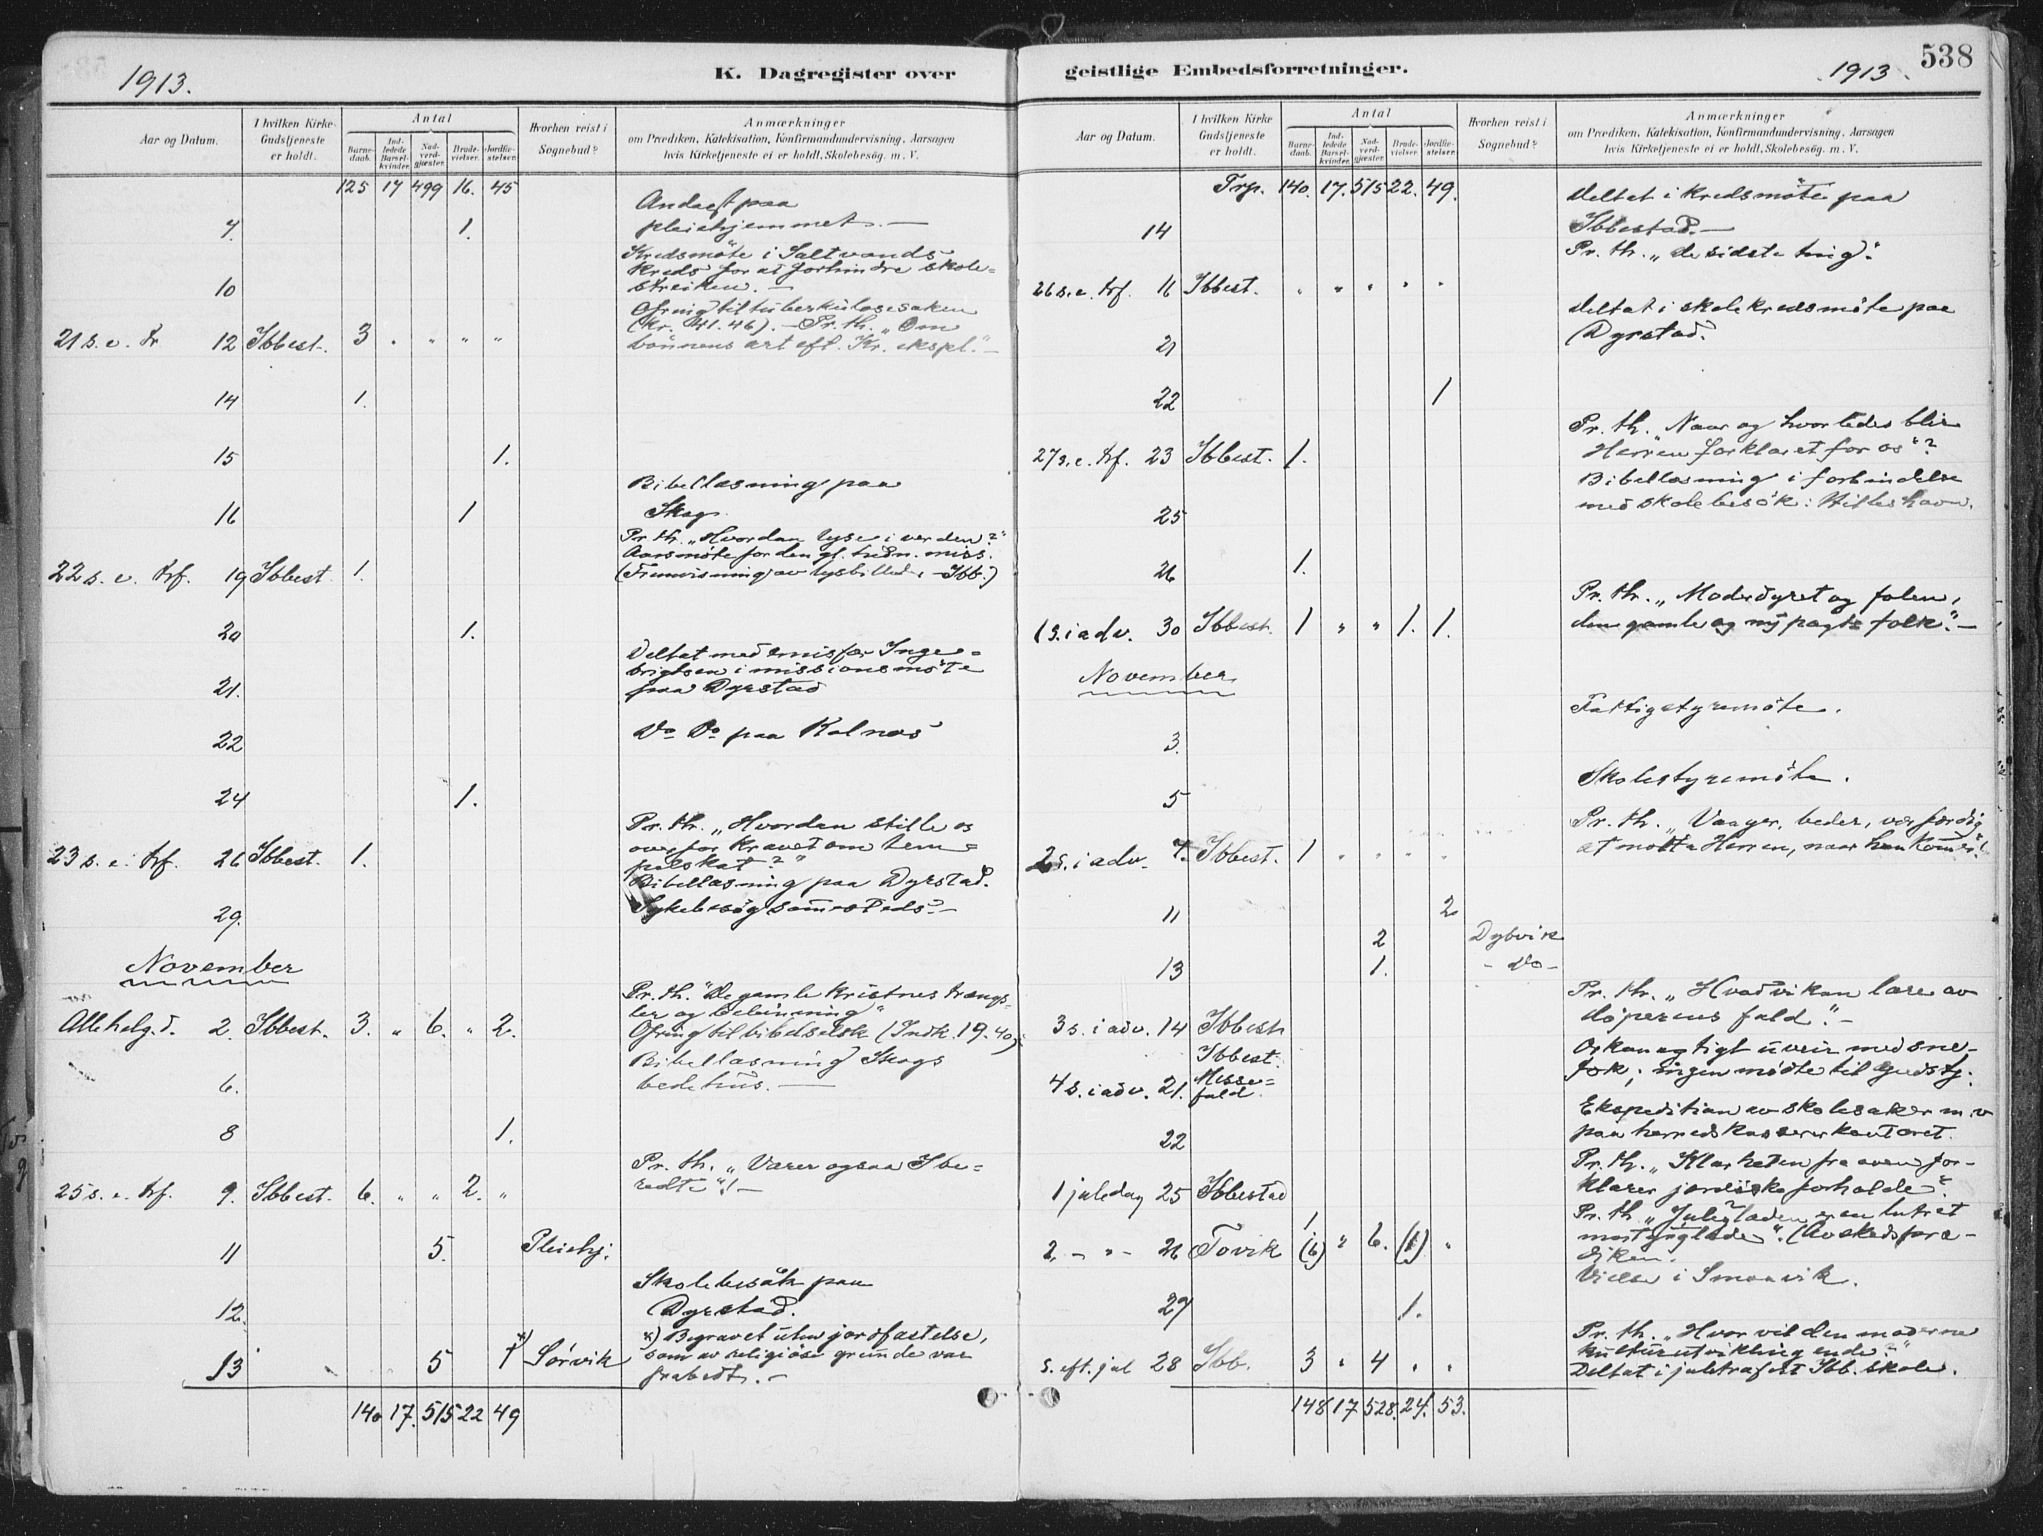 1913.
K. Dagregister over
Aar og Datum.
I hvilken Kirke Gudstjeneste er holdt.
Antal
Barnedaab.
Indledede Barselkvinder.
Nadverdgjæster.
Brudevielser.
Jordfæstelser.
Hvorhen reist i Sognebud?
Anmærkninger
om Prædiken, Katekisation, Konfirmandundervisning, Aarsagen
hvis Kirketjeneste ei er holdt, Skolebesøg. m. V.
125 17 499 16. 45
Andagt paa
7. 1. pleiehjemmet. —
Kredsmöte i Saltvands
kreds for at forhindre skole-
10 streiken. —
Ofring til tuberkulosesaken
(kr. 41.46). — Pr. th. „Om
21 s. e. Tr 12 Ibbest. 3 " " " " bönnens art eft. Kr. ekspl." —
14 1.
15 1.
Bibellæsning paa
16 1 Skog.
Pr. th. „Hvordan lyse i verden?"
Aarsmöte for den gl. hedn. miss.
22 s. e. trf. 19 Ibbest 1. (Fremvisning av lysbilleder, Ibb.)
20 1.
Deltat med emisfær Inge-
brigtsen i missionsmöte
21. paa Dyrstad
22 Do Do paa Kolnæs
24 1.
Pr. th. „Hvordan stille os
overfor kravet om tem-
23 s. e. trf. 26 Ibbest. 1. pelskat?"
Bibellæsning paa Dyrstad.
29. Sykebesög sammesteds. —
November
Pr. th. "De gamle kristnes trængs-
ler og belönning"
Allehelg.d. 2. Ibbest. 3. " 6. " 2. Ofring til bibelselsk (Indk. 19.40).
Bibellæsning Skogs
6. bedehus. —
8 1.
Pr. th. „Værer ogsaa I be-
25 s. e. trf. 9. Ibbest. 6. " " 2. " redte"! —
11 5. Pleiehj.
Skolebesök paa
12. Dyrstad.
*) *) Begravet uten jordfæstelse,
13 5 1 Sørvik som av religiöse grunde var
frabedt. —
140 17. 515 22 49
geistlige Embedsforretninger.
1913.
538
Aar og Datum.
I hvilken Kirke Gudstjeneste er holdt.
Antal
Barnedaab.
Indledede Barselkvinder.
Nadverdgjæster.
Brudevielser.
Jordfæstelser.
Hvorhen reist i Sognebud?
Anmærkninger
om Prædiken, Katekisation, Konfirmandundervisning, Aarsagen
hvis Kirketjeneste ei er holdt, Skolebesøg. m. V.
Trp. 140. 17. 515 22. 49. Deltat i kredsmöte paa
14 Ibbestad. —
Pr. th. „de sidste ting".
26 s. e. trf. 16 Ibbest. " " " " "
Deltat i skolekredsmöte paa
21 Dyrstad.
22 1
Pr. th. „Naar og hvorledes blir
27 s. e. trf. 23 Ibbest. 1. Herren forklaret for os"?
Bibellæsning i forbindelse
25 med skolebesök i Hilleshavn.
26 1.
Pr. th. „Moderdyret og folen,
1 s. i adv. 30 Ibbest. 1 " " 1. 1. den gamle og ny pagts folk." —
November
Fattigstyremöte.
3.
Skolestyremöte.
5
Pr. th. „Vaager, beder, vær færdig
2 s. i adv. 7. Ibbest. 1 " " " " at motta Herren, naar han kommer"!
11 2
2 Dybvik
13 1. - Do -
Pr. th. „Hvad vi kan lære av
3 s. i adv. 14 Ibbest döperens fald". —
Ibbest. Orkanagtigt uveir med sne-
4 s. i adv. 21. Messe- fok; ingen mödte til Gudstj.
fald.
Ekspedition av skolesaker m.v
22 paa herredskassererkontoret.
Pr. th. „Klarheten fra oven for-
1 juledag 25 Ibbestad klarer jordiske forholde".
1 Pr. th „Juleglæden er en lutret
2. - " - 26 Tovik (6) " 6. (1) " (Avskedspræ-
diken.
Vielse i Smaavik.
29 1.
Pr. th. „Hvor vil den moderne
kulturutvikling ende."
s. eft. jul 28 Ibb. 3 " 4 " " Deltat i juletræfest Ibb. skole.
148 17 528. 24. 53.